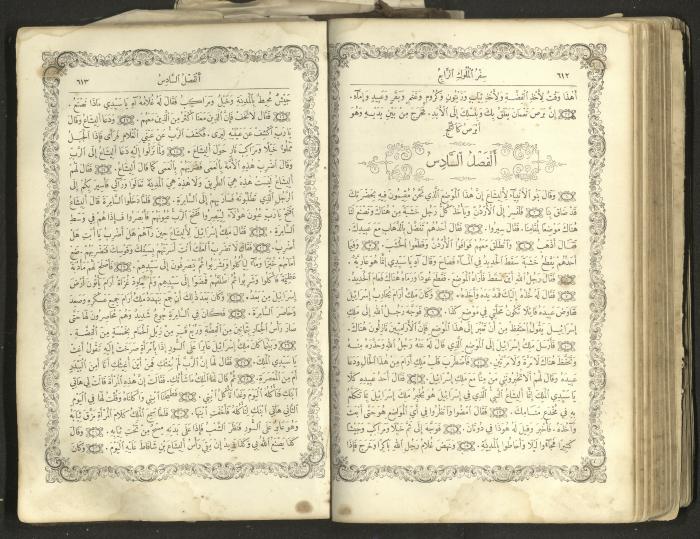 ٦١٢
سفر الملوك الرابع
أهذا وقت لأخذ الفضة ولأخذ ثياب وزيتون وكروم وغنم وبقر وعبيد وإماء.
إن برص نعمان يعلق بك وبنسلك إلى الأبد. فخرج من بين يديه وهو
أبرص كالثلج
الفصل السادس
وقال بنو الأنبياء لأليشاع إن هذا الموضع الذي نحن مقيمون فيه بحضرتك
قد ضاق بنا. فلنسر إلى الأردن ويأخذ كل رجل خشبة من هناك ونصنع لنا
هناك موضعا لمقامنا. فقال سيروا. فقال أحدهم تفضل بالذهاب مع عبيدك.
فقال أذهب. وانطلق معهم فوافوا الأردن وقطعوا الخشب. وفيما
أحدهم يقطع خشبة سقط الحديد في الماء فصاح وقال آه يا سيدي إنما هو عارية.
فقال رجل الله أين سقط فأراه الموضع. فقطع عودا ورماه هناك فعام الحديد.
فقال له خذه إليك فمد يده وأخذه. وكان ملك أرام يحارب إسرائيل
ففاوض عبيده قائلا تكون محلتي في موضع كذا. فوجه رجل الله إلى ملك
إسرائيل يقول احفظ من أن تعبر إلى هذا الموضع فإن الأراميين نازلون هناك.
فأرسل ملك إسرائيل إلى الموضع الذي قال له عنه رجل الله وحذره منه
وتحفظ هناك لا مرة ولا مرتين. فاضطرب قلب ملك أرام من هذا الحال ودعا
عبيده وقال لهم ألا تخبروني من منا مع ملك إسرائيل. فقال أحد عبيده كلا
يا سيدي الملك إنما أليشاع النبي الذي في إسرائيل هو يخبر ملك إسرائيل بما تتكلم
به في مخدع منامك. فقال امضوا وانظروا في أي الموضع هو حتى أبعث
وآخذه. فأخبر وقيل له هوذا في دوتان. فوجه إلى ثم خيلا ومراكب وجيشا
كثيرا فجاءوا ليلا وأحاطوا بالمدينة. ونهض غلام رجل الله باكرا وخرج فإذا
٦١٣
الفصل السادس
جيش محيط بالمدينة وخيل ومراكب فقال له غلامه آه يا سيدي ماذا نصنع.
فقال لا تخف فإن الذين معنا أكثر من الذين معهم. ودعا أليشاع
يا رب اكشف عن عينيه ليرى. فكشف الرب عن عيني الغلام فرأى فإذا الجبل
مملوء خيلا ومراكب نار حول أليشاع. ولما نزلوا إليه دعا أليشاع إلى الرب
وقال اضرب هذه الأمة بالعمى فضربهم بالعمى كما قال أليشاع. فقال لهم
أليشاع ليست هذه هي الطريق ولا هذه هي المدينة تعالوا ورائي فأسير بكم إلى
الرجل الذي تطلبونه فسار بهم إلى السامرة. فلما دخلوا السامرة قال أليشاع
افتح يا رب عيون هؤلاء ليبصروا ففتح الرب عيونهم فأبصروا فإذا هم في وسط
السامرة. فقال ملك إسرائيل لأليشاع حين رآهم هل أضرب يا أبت هل
أضرب. فقال لا تضرب ألعلك أنت أسرتهم بسيفك وقوسك فتضربهم. ضع
أمامهم خبزا وماء ليأكلوا ويشربوا ثم ينصرفون إلى سيدهم. فأصلح لهم مأدبة
عظيمة فأكلوا وشربوا ثم أطلقهم فمضوا إلى سيدهم ولم يعاود غزاة أرام يأتون أرض
إسرائيل من بعد. وكان بعد ذلك أن جمع بنهدد ملك أرام جميع عسكره وصعد
وحاصر السامرة. فكان في السامرة جوع شديد وهم محاصرون لها حتى
صار رأس الحمار بثمانين من الفضة وربع قب من زبل الحمام بخمسة من الفضة.
وبينما كان ملك إسرائيل عابرا على السور إذا بامرأة صرخت إليه تقول أغث
يا سيدي الملك. فقال لها إن الرب لم يغثك فمن أين أغيثك أنا أمن البيدر
أم من المعصرة. ثم قال لها الملك ما شأنك. فقالت إن هذه المرأة قالت لي هاتي
ابنك فنأكله اليوم وغدا نأكل ابني. فطبخنا ابني وأكلناه وقلت لها في اليوم
الثاني هاتي ابنك لنأكله فأخفت ابنها. فلما سمع الملك كلام المرأة مزق ثيابه
وهو عابر على السور فنظر الشعب فإذا على بدنه مسح من تحت ثيابه. وقال
كذا يصنع الله بي وكذا يزيد إن بقي رأس أليشاع بن شافاط عليه اليوم. وكان